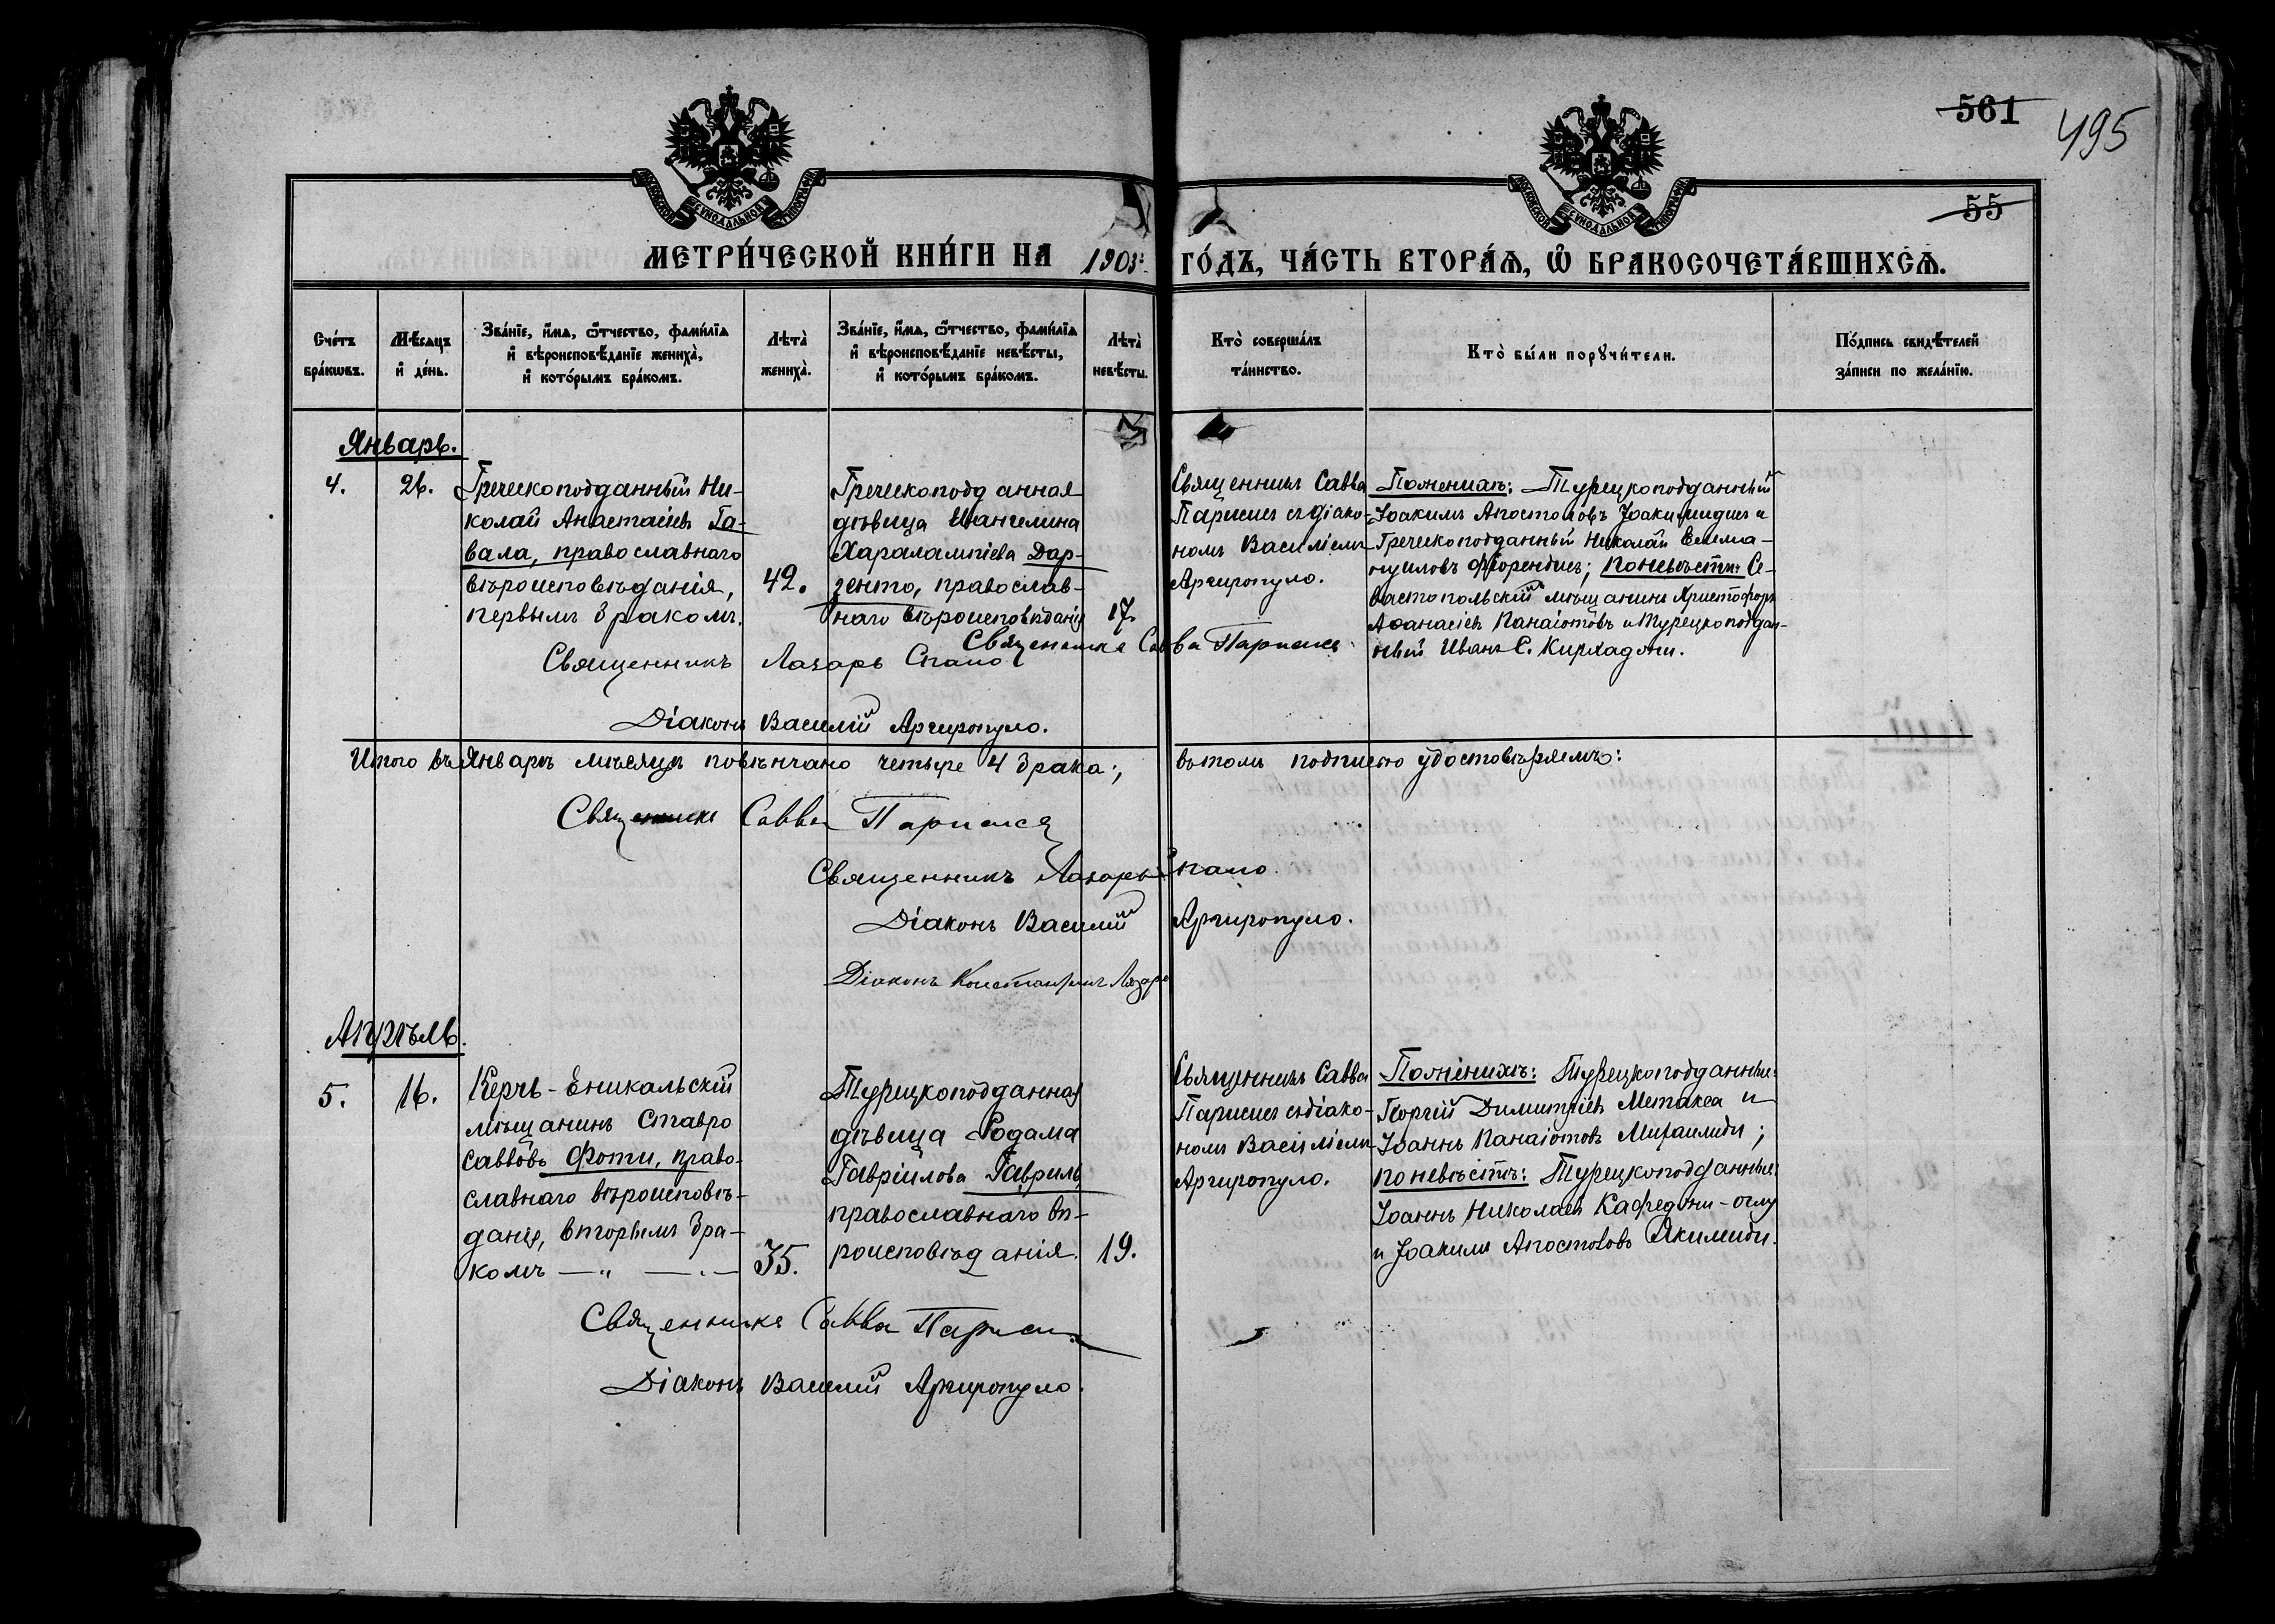 561
495
55
МОСКОВСКОЙ СѴНОДАЛЬНОЙ ТИПОГРАФІИ
МОСКОВСКОЙ СѴНОДАЛЬНОЙ ТИПОГРАФІИ
МЕТРИ́ЧЕСКОЙ КНИ́ГИ НА 1903 г. ГО́ДЪ, ЧА́СТЬ ВТОРА́Ѧ, Ѽ БРАКОСОЧЕТА́ВШИХСѦ.
Сче́тъ
бра́кѡвъ.
Мѣ́сѧцъ
и҆ де́нь.
Зва́нїе, и҆́мѧ, ѻ҆́тчество, фами́лїѧ
и҆ вѣроисповѣ́данїе жениха̀,
и҆ кото́рымъ бра́комъ.
Лѣта̀
жениха̀.
Зва́нїе, и҆́мѧ, ѻ҆́тчество, фами́лїѧ
и҆ вѣроисповѣ́данїе невѣ́сты,
и҆ кото́рымъ бра́комъ.
Лѣта̀
невѣ́сты.
Кто̀ соверша́лъ
та́инство.
Кто̀ бы́ли порꙋчи́тели.
По́дпись свидѣ́телей
за́писи по жела́нїю.
Январь.
4.
26.
Греческоподданный Ни-
колай Анастасіевъ Га-
вала, православнаго
вѣроисповѣданія,
первымъ бракомъ.
42.
Греческоподданная
дѣвица Евангелина
Харалампіева Дар-
зенто, православ-
наго вѣроисповѣданія
17.
Священникъ Савва
Париси съ діако-
номъ Василіемъ
Аргиропуло.
По женихѣ: Турецкоподданный
Іоакимъ Апостоловъ Іоакимидисъ и
Греческоподданный Николай Емма-
нуиловъ Фіорендисъ; по невѣстѣ: Се-
вастопольскій мѣщанинъ Христофоръ
Аѳанасіевъ Панаіотовъ и Турецкоподдан-
ный Иванъ С. Кирхадзи.
Священникъ Савва Париси
Священникъ Лазарь Спано
Діаконъ Василій Аргиропуло.
Итого въ Январѣ мѣсяцѣ повѣнчано четыре 4 брака; въ томъ подписью удостовѣряемъ:
Священникъ Савва Париси
Священникъ Лазарь Спано
Діаконъ Василій Аргиропуло.
Діаконъ Константинъ
Апрѣль.
5.
16.
Керчь-Еникальскій
мѣщанинъ Ставро
Саввовъ Фоти, право-
славнаго вѣроисповѣ-
данія, вторымъ бра-
комъ — „ — . —
35.
Турецкоподданная
дѣвица Родама
Гавріилова Гавриль,
православнаго вѣ-
роисповѣданія.
19.
Священникъ Савва
Париси съ діако-
номъ Василіемъ
Аргиропуло.
По женихѣ: Турецкоподданные:
Георгій Димитріевъ Метакса и
Іоаннъ Панаіотовъ Михаилиди;
по невѣстѣ: Турецкоподданные:
Іоаннъ Николаевъ -оглу
и Іоакимъ Апостоловъ Якимиди.
Священникъ Савва Париси
Діаконъ Василій Аргиропуло.